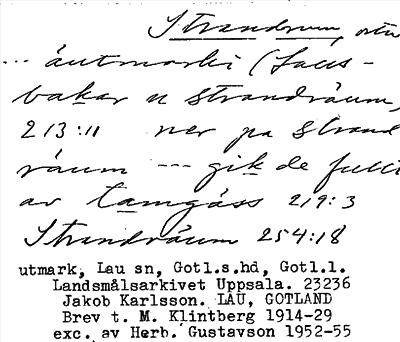 Strandrum, ortn
... áutmarki (Laus-
bakar n strandráum,
213:11 ner pa Strand
ráum --- gik de fullt
av tamgáss 219:3
Strandráum 254:18
utmark, Lau sn, Gotl.s.hd, Gotl.l.
Landsmålsarkivet Uppsala. 23236
Jakob Karlsson. LAU, GOTLAND
Brev t. M. Klintberg 1914-29
exc. av Herb. Gustavson 1952-55